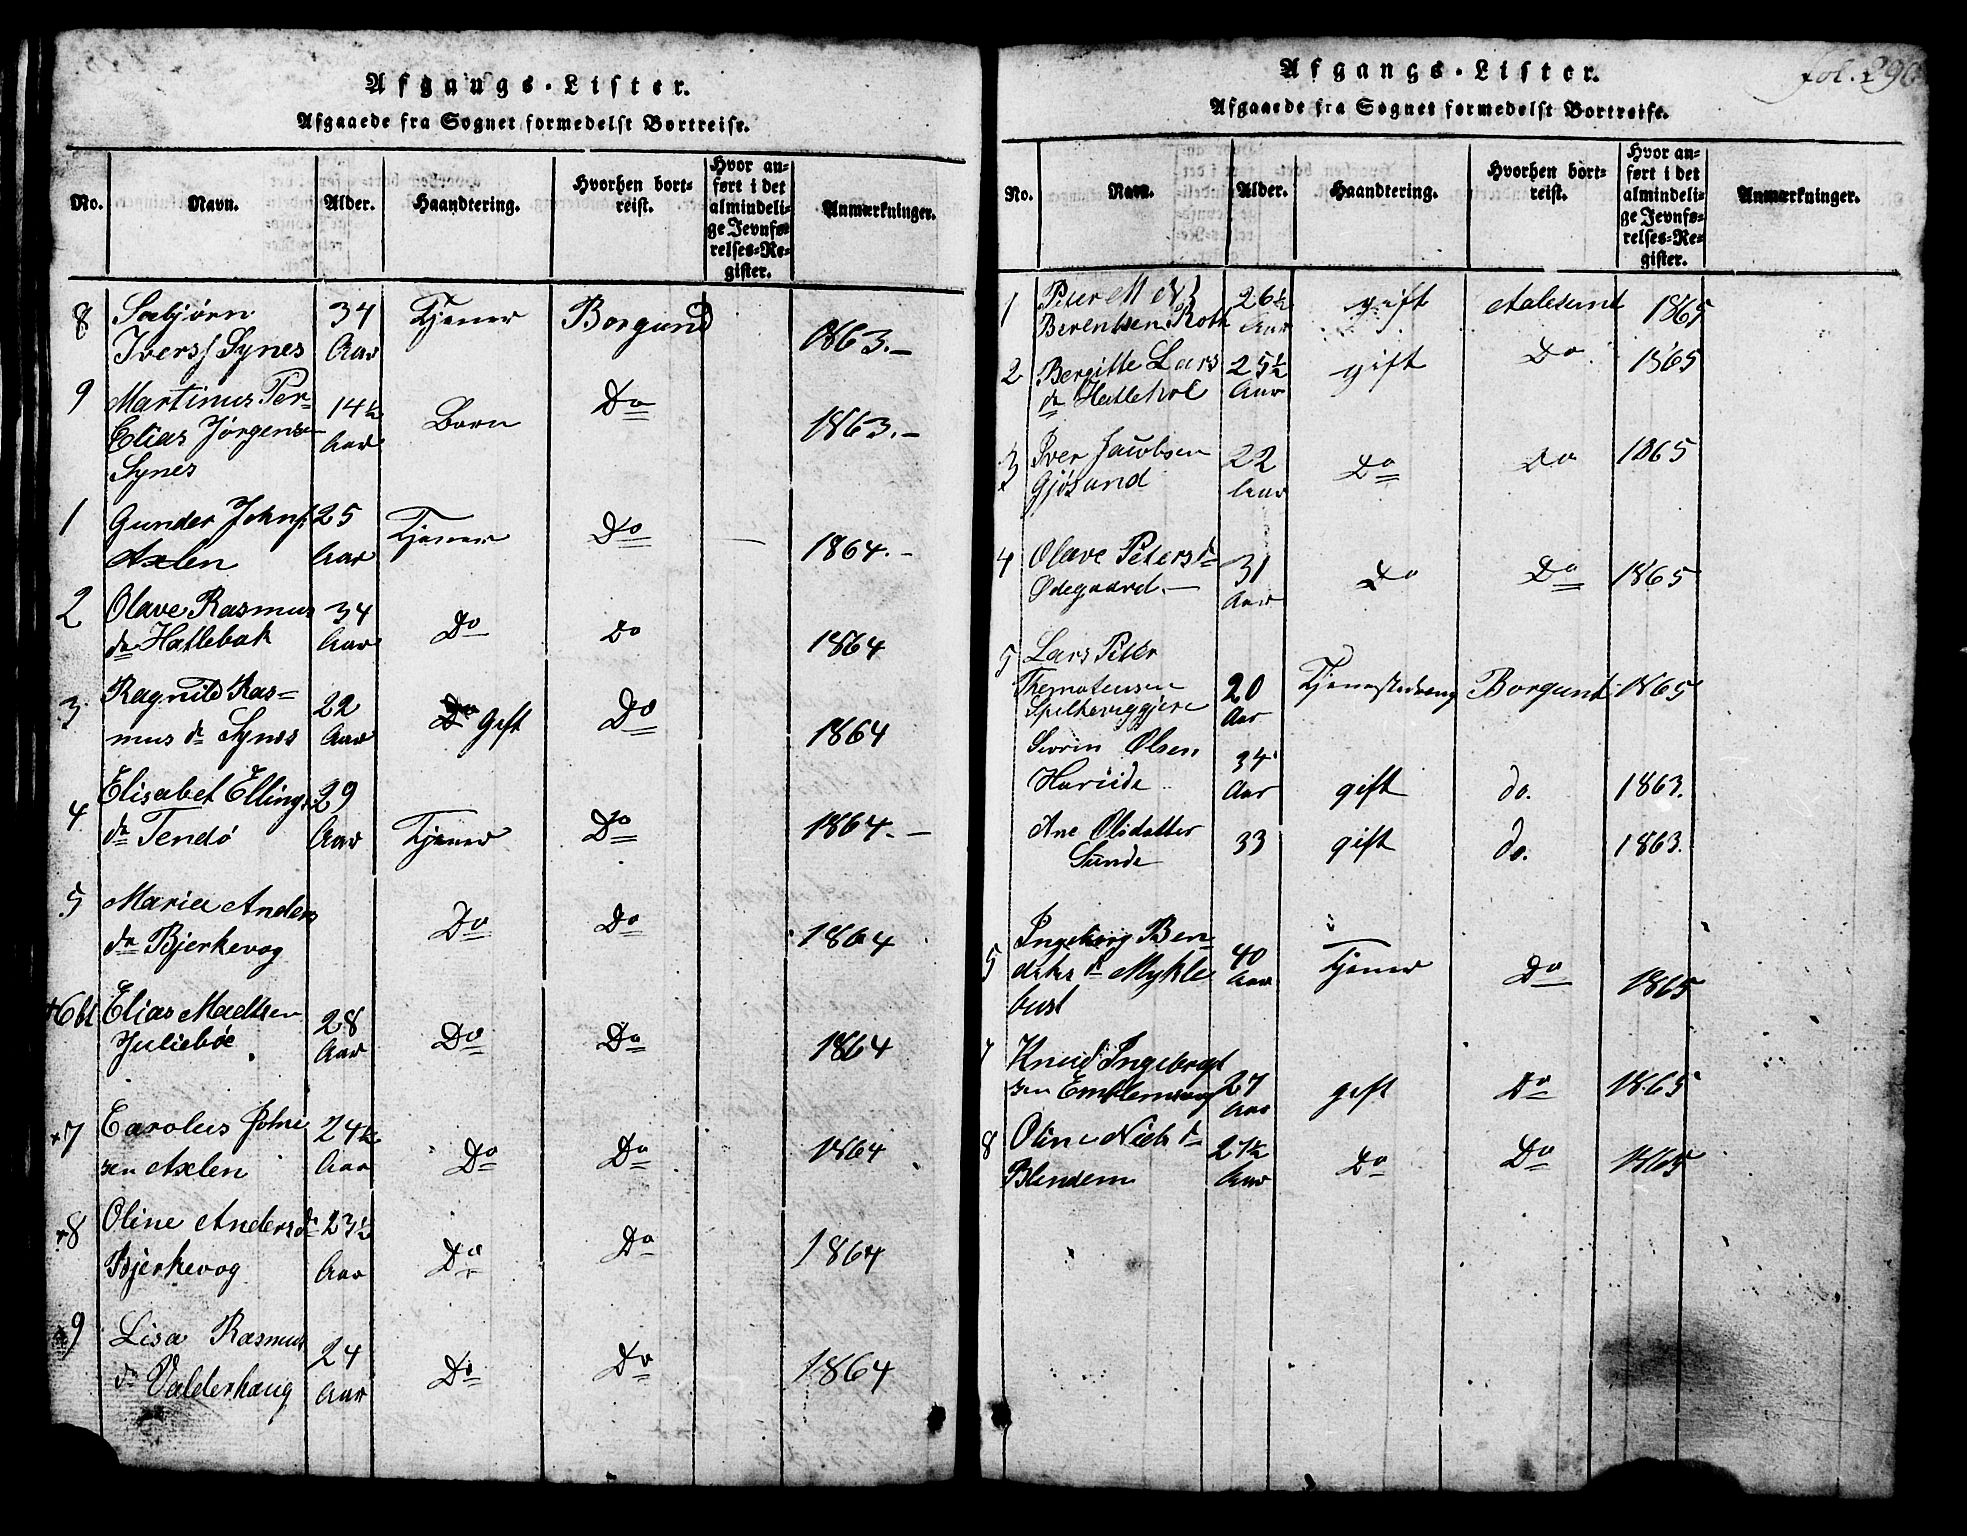 Afgangs-Lister.
Afgaaede fra Sognet formedelst Bortreise.
No. Navn. Alder. Haandtering. Hvorhen bortreist. Hvor anført i det almindelige Jevnførelses-Register. Anmærkninger.
8 Sæbjørn 34 Tjener Borgund
Ivers Synes Aar 1863.-
9 Martinus Per- 14½ Barn Do 1863.-
Elias Jørgensen Aar
Synes
1 Gunder Johns. 25 Tjener Do 1864.-
Axlen Aar
2 Olave Rasmus 34 Do Do 1864
dr Hatlebak Aar
3 Ragnild Ras- 22 Gift Do 1864
mus dr Synes Aar
4 Elisabet Ellings 29 Tjener Do 1864.-
dr Tendø Aar
5 Maria Anders Do Do 1864
dr Bjerkevog
+6 Elias Madsen 28 Do Do 1864
Juliebøe Aar
+7 Carolus Johne 24½ Do Do 1864
sen Axlen Aar
+8 Oline Anders dr 23½ Do Do 1864
Bjerkevog Aar
9 Lisa Rasmus 24 Do Do 1864
dr Valderhaug Aar
fol. 290
Afgangs-Lister.
Afgaaede fra Sognet formedelst Bortreise.
No. Navn. Alder. Haandtering. Hvorhen bortreist. Hvor anført i det almindelige Jevnførelses-Register. Anmærkninger.
1 Peter M 26½ gift Aalesund 1865
Berentsen Roth Aar
2 Bergitte Lars 25½ gift Do 1865
dr Hatlehol Aar
3 Iver Jacobsen 22 Do Do 1865
Gjøsund Aar
4 Olave Peters dr 31 Do Do 1865
Ødegaard.- Aar
5 Lars Peter
20 Tjenestedreng Borgund 1865
Aar
Sivrin Olsen 34
Hariide Aar gift do. 1863.
Ane Olsdatter 33 gift do. 1863.
Sunde
5 Ingeborg Ben- 40 Tjener Do 1865
dr Mykle Aar
bust
7 Knud Ingebrigt
sen Emblemsvag 27 gift Do 1865
Aar
8 Oline Niels dr 27½ Do Do 1865
Blendem Aar